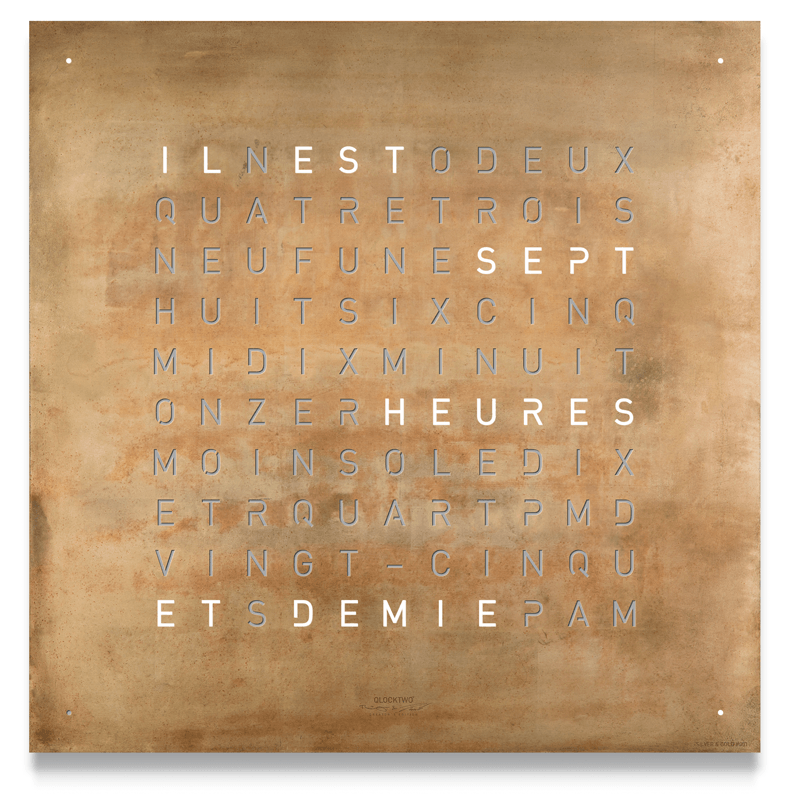 ILNESTODEUX
QUATRETROIS
NEUFUNESEPT
HUITSIXCINQ
MIDIXMINUIT
ONZERHEURES
MOINSOLEDIX
ETRQUARTPMD
VINGT-CINQU
ETSDEMIEPAM
QLOCKTWO